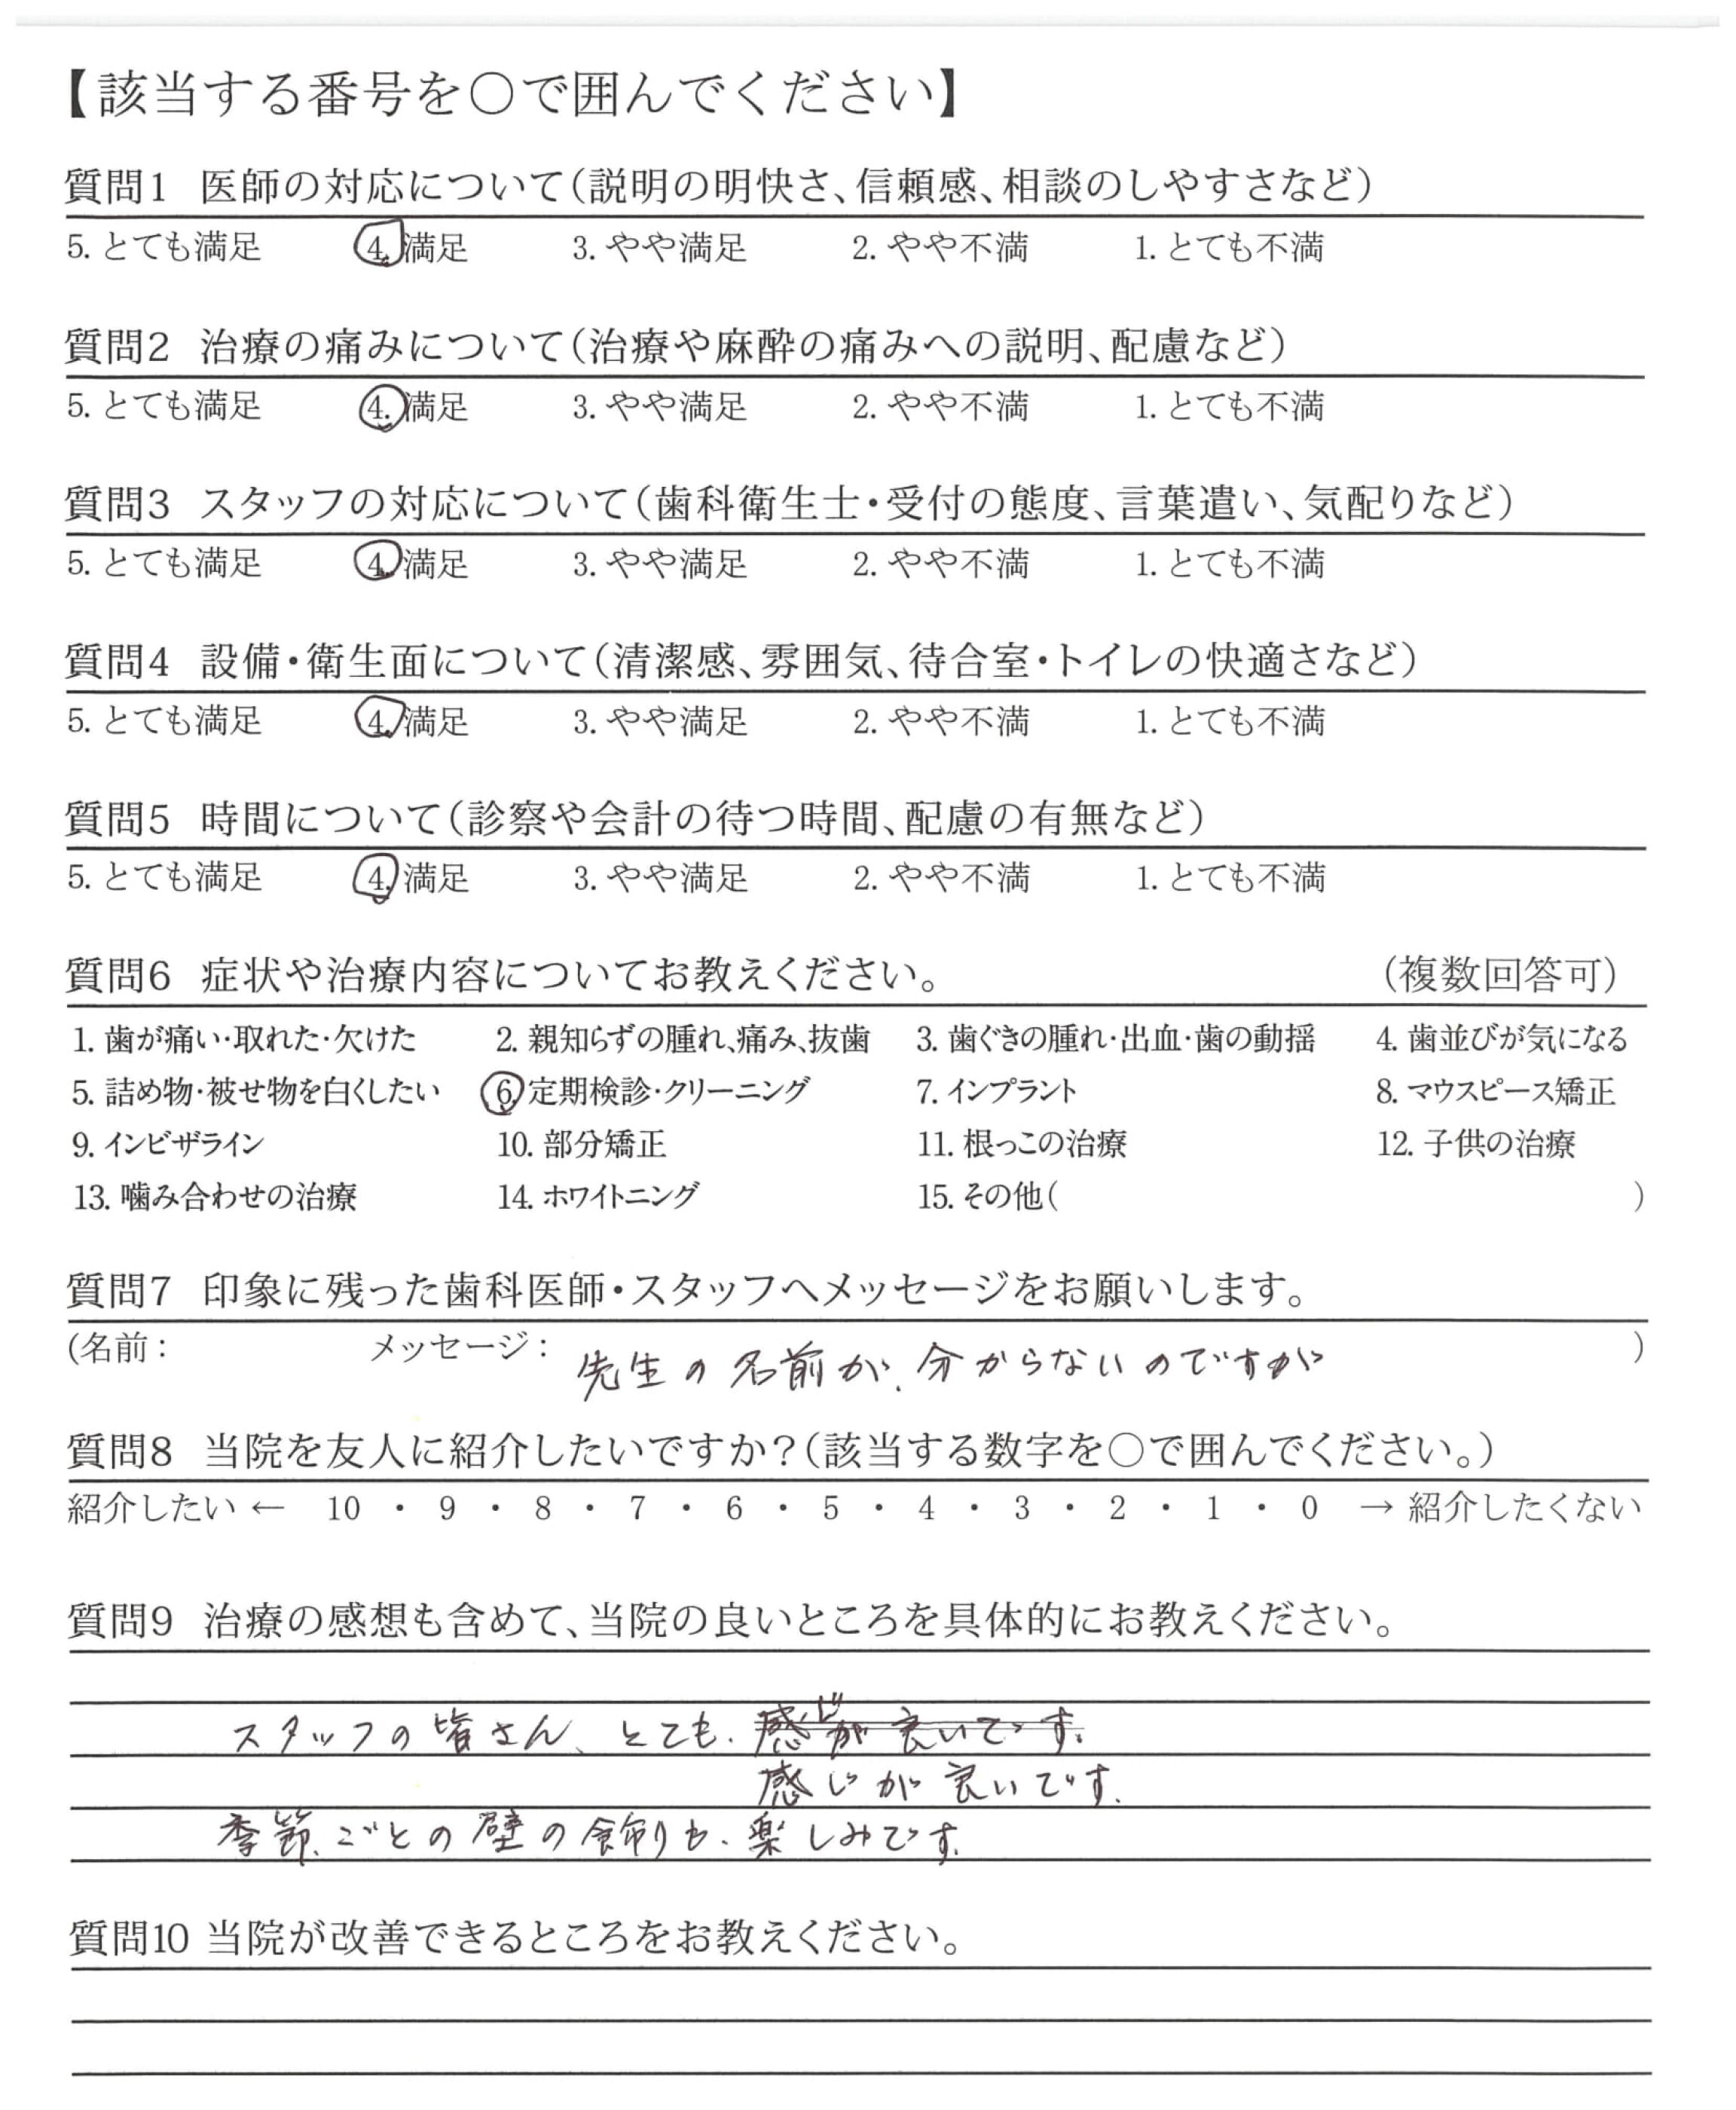 【該当する番号を○で囲んでください】
質問1 医師の対応について(説明の明快さ、信頼感、相談のしやすさなど)
5. とても満足 4. 満足 3. やや満足 2. やや不満 1. とても不満
質問2 治療の痛みについて(治療や麻酔の痛みへの説明、配慮など)
5. とても満足 4. 満足 3. やや満足 2. やや不満 1. とても不満
質問3 スタッフの対応について(歯科衛生士・受付の態度、言葉遣い、気配りなど)
5. とても満足 4. 満足 3. やや満足 2. やや不満 1. とても不満
質問4 設備・衛生面について(清潔感、雰囲気、待合室・トイレの快適さなど)
5. とても満足 4. 満足 3. やや満足 2. やや不満 1. とても不満
質問5 時間について(診察や会計の待つ時間、配慮の有無など)
5. とても満足 4. 満足 3. やや満足 2. やや不満 1. とても不満
質問6 症状や治療内容についてお教えください。 (複数回答可)
1. 歯が痛い・取れた・欠けた 2. 親知らずの腫れ、痛み、抜歯 3. 歯ぐきの腫れ・出血・歯の動揺 4. 歯並びが気になる
5. 詰め物・被せ物を白くしたい 6. 定期検診・クリーニング 7. インプラント 8. マウスピース矯正
9. インビザライン 10. 部分矯正 11. 根っこの治療 12. 子供の治療
13. 噛み合わせの治療 14. ホワイトニング 15. その他( )
質問7 印象に残った歯科医師・スタッフへメッセージをお願いします。
(名前: メッセージ: 先生の名前が、分からないのですが )
質問8 当院を友人に紹介したいですか?(該当する数字を○で囲んでください。)
紹介したい ← 10 ・ 9 ・ 8 ・ 7 ・ 6 ・ 5 ・ 4 ・ 3 ・ 2 ・ 1 ・ 0 → 紹介したくない
質問9 治療の感想も含めて、当院の良いところを具体的にお教えください。
スタッフの皆さん、とても、感じが良いです。
感じが良いです。
季節、ごとの壁の飾りも、楽しみです。
質問10 当院が改善できるところをお教えください。